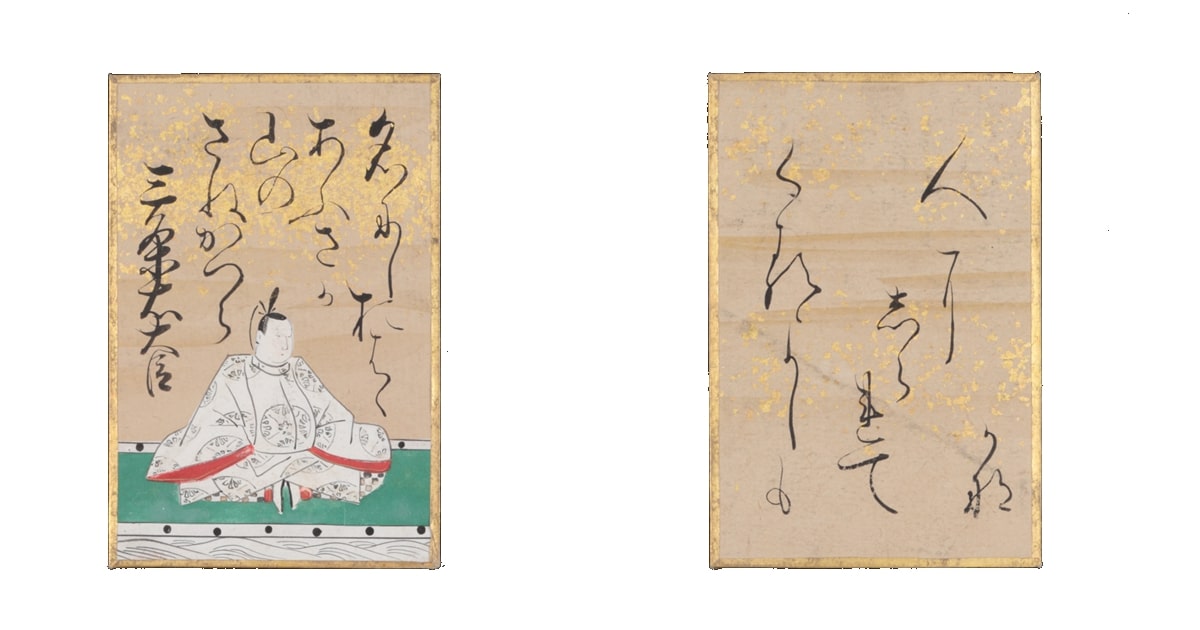 名にしおはゝ
あふさか
山の
さねかつら
三条右大臣
人に
しられて
くるよしも
かな